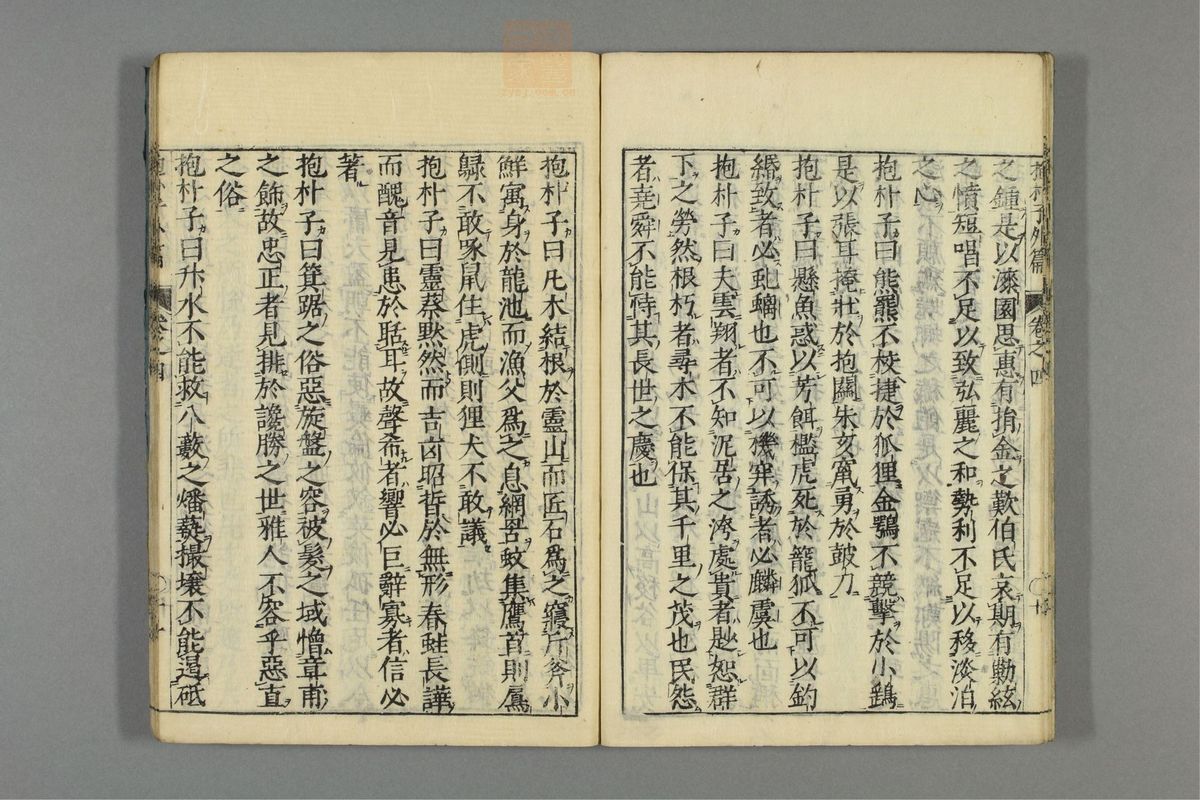 抱朴子外篇 卷之四 十
之鍾是以漆園思惠有捐金之歎伯氏哀期有勦絃
之憤短唱不足以致弘麗之和勢利不足以移淡泊
之心
抱朴子曰熊羆不校捷於狐狸金鶚不競擊於小鷂
是以張耳掩壯於抱關朱亥窜勇於鼓刀
抱朴子曰懸魚惑以芳餌檻虎死於籠狐不可以釣
緡致者必虬螭也不可以機穽誘者必麟虞也
抱朴子曰夫雲翔者不知泥居之洿處貴者尠恕群
下之勞然根朽者尋木不能保其千里之茂也民怨
者堯舜不能恃其長世之慶也
抱朴子曰凡木結根於靈山而匠石爲之寢斤斧小
鮮寓身於龍池而漁父爲之息網罟蚊集鷹首則鳥
不敢啄鼠住虎側則狸犬不敢議
抱朴子曰靈蔡黙然而吉凶昭晢於無形春蛙長譁
而醜音見患於聒耳故聲希者響必巨辭寡者信必
著
抱朴子曰箕踞之俗惡旋盤之容被髮之域憎章甫
之飾故忠正者見排於讒勝之世雅人不容乎惡直
之俗
抱朴子曰升水不能救八藪之燔爇撮壤不能遏砥
卷之四